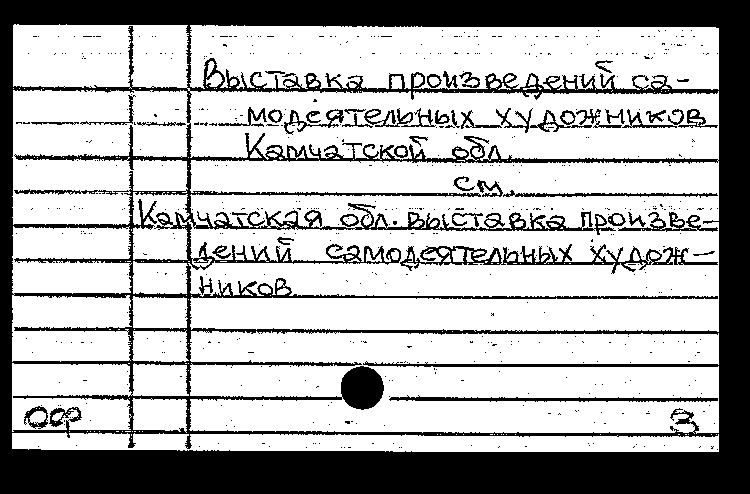 Выставка произведений са-
модеятельных художников
Камчатской обл.
см.
Камчатская обл. выставка произве-
дений самодеятельных худож-
ников
Оф З